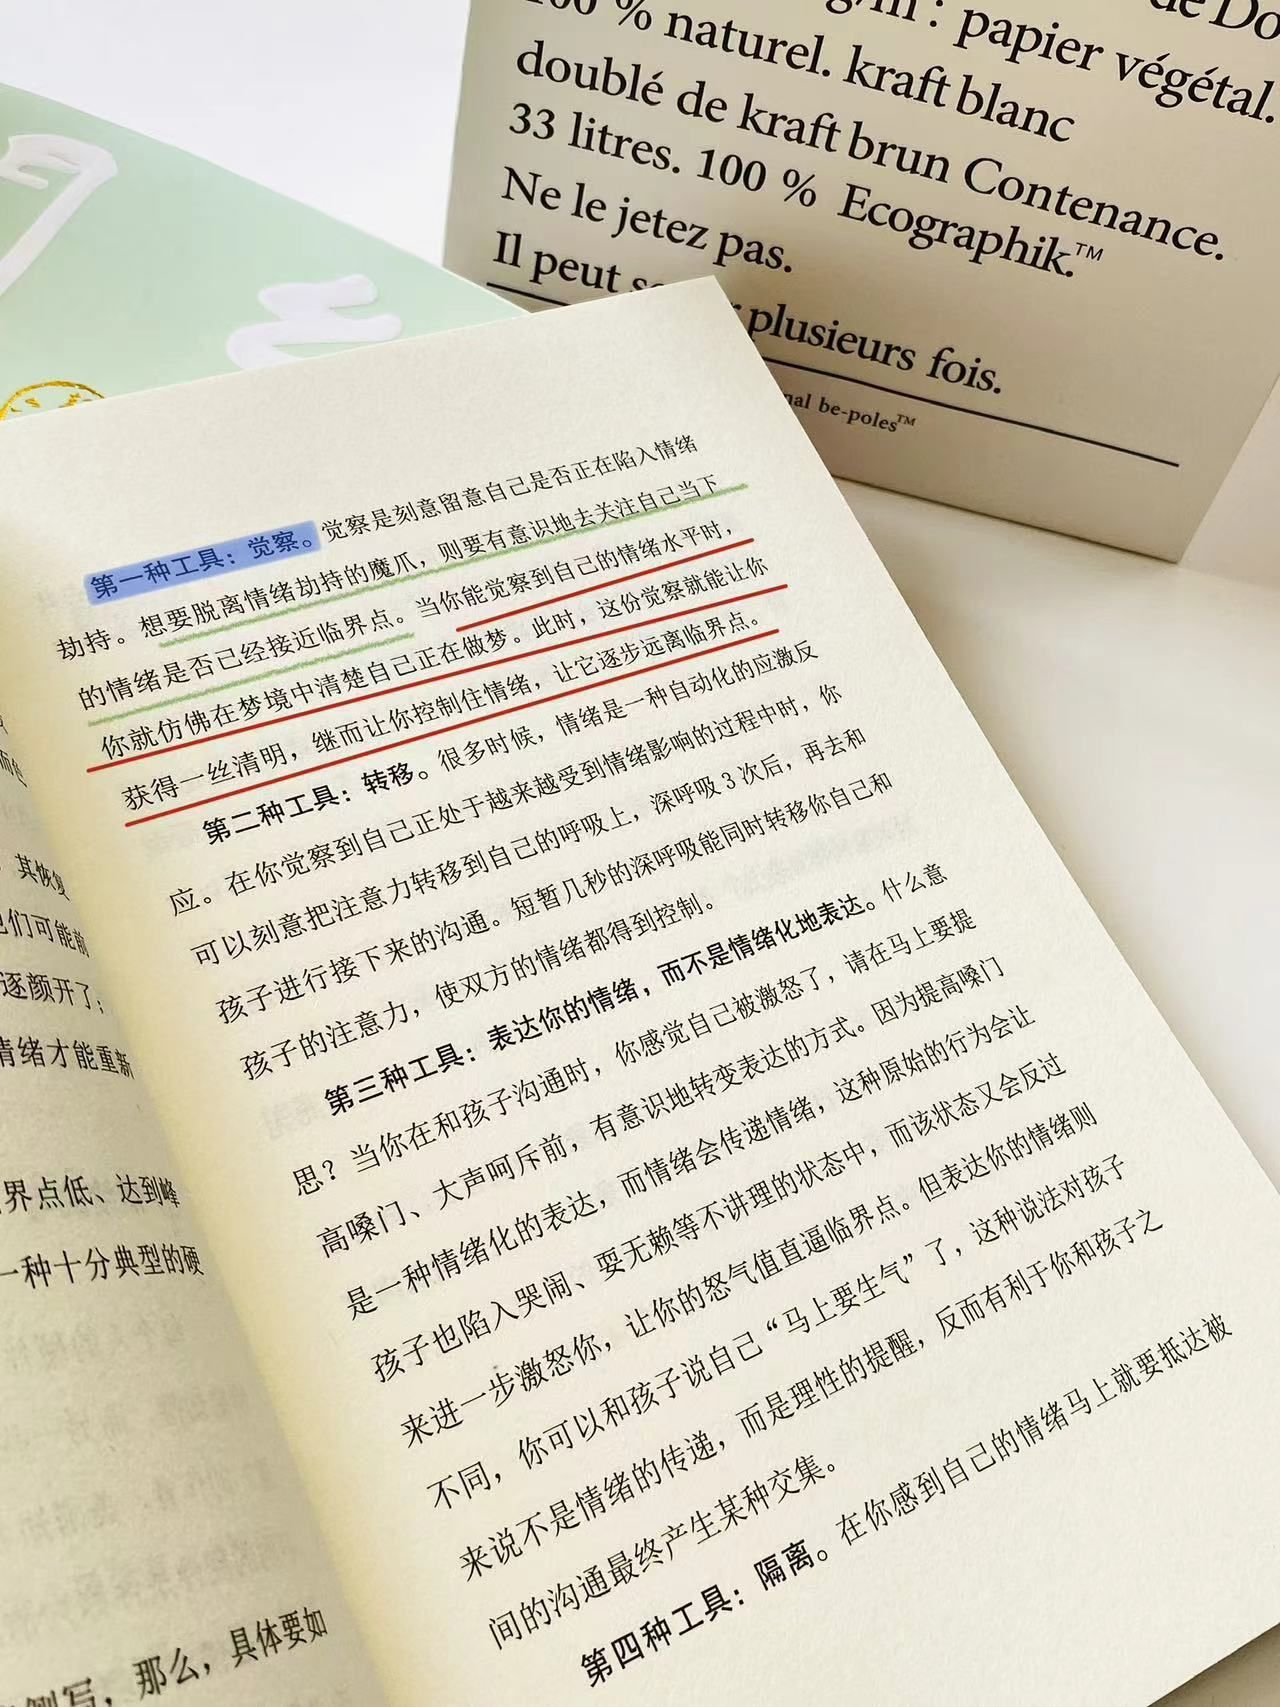 de Do
: papier végétal.
100 % naturel. kraft blanc
doublé de kraft brun Contenance.
33 litres. 100 % Ecographik.™
Ne le jetez pas.
Il peut plusieurs fois.
be-poles™
第一种工具：觉察。觉察是刻意留意自己是否正在陷入情绪
劫持。想要脱离情绪劫持的魔爪，则要有意识地去关注自己当下
的情绪是否已经接近临界点。当你能觉察到自己的情绪水平时，
你就仿佛在梦境中清楚自己正在做梦。此时，这份觉察就能让你
获得一丝清明，继而让你控制住情绪，让它逐步远离临界点。
第二种工具：转移。很多时候，情绪是一种自动化的应激反
应。在你觉察到自己正处于越来越受到情绪影响的过程中时，你
可以刻意把注意力转移到自己的呼吸上，深呼吸3次后，再去和
孩子进行接下来的沟通。短暂几秒的深呼吸能同时转移你自己和
孩子的注意力，使双方的情绪都得到控制。
第三种工具：表达你的情绪，而不是情绪化地表达。什么意
思？当你在和孩子沟通时，你感觉自己被激怒了，请在马上要提
高嗓门、大声呵斥前，有意识地转变表达的方式。因为提高嗓门
是一种情绪化的表达，而情绪会传递情绪，这种原始的行为会让
孩子也陷入哭闹、耍无赖等不讲理的状态中，而该状态又会反过
来进一步激怒你，让你的怒气值直逼临界点。但表达你的情绪则
不同，你可以和孩子说自己“马上要生气”了，这种说法对孩子
来说不是情绪的传递，而是理性的提醒，反而有利于你和孩子之
间的沟通最终产生某种交集。
第四种工具：隔离。在你感到自己的情绪马上就要抵达被
其恢复
们可能前
逐颜开了；
情绪才能重新
界点低、达到峰
一种十分典型的硬
侧写，那么，具体要如